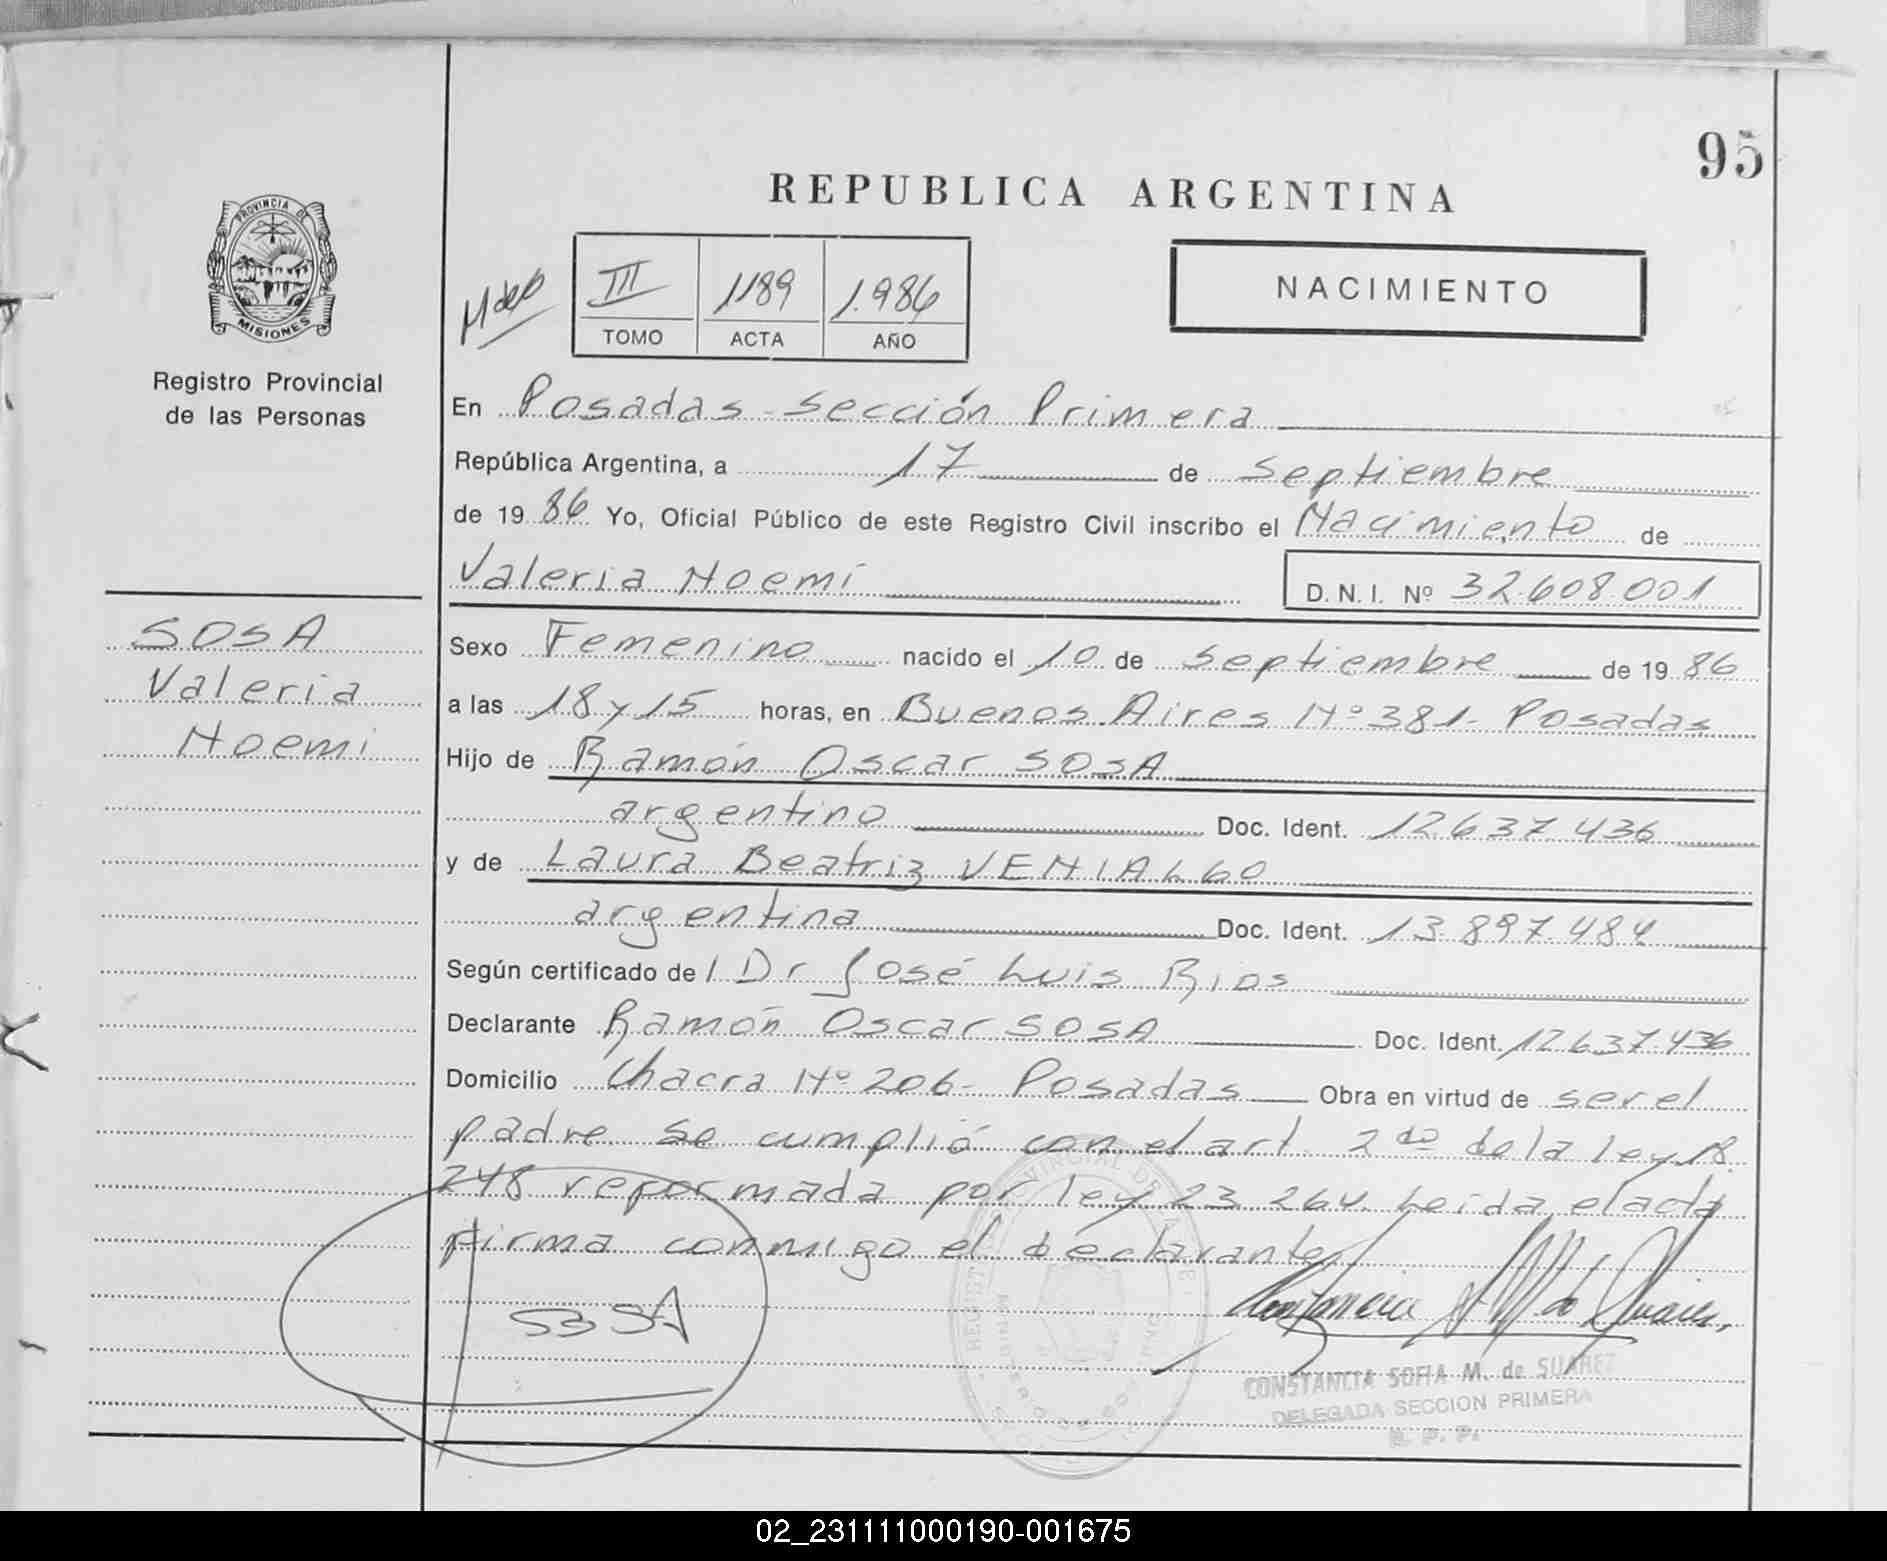 95
REPUBLICA ARGENTINA
PROVINCIA DE
MISIONES
Registro Provincial
de las Personas
III 1189 1.986
TOMO ACTA AÑO
NACIMIENTO
En Posadas - Sección Primera
República Argentina, a 17 de Septiembre
de 19 86 Yo, Oficial Público de este Registro Civil inscribo el Nacimiento de
Valeria Noemí D.N.I. Nº 32.608.001
SOSA
Valeria
Noemi
Sexo Femenino nacido el 10 de Septiembre de 19 86
a las 18 y 15 horas, en Buenos Aires Nº 381- Posadas
Hijo de Ramón Oscar SOSA
argentino Doc. Ident. 12.637.436
y de Laura Beatriz VENIALGO
argentina Doc. Ident. 13.897.484
Según certificado de l Dr José Luis Rios
Declarante Ramón Oscar SOSA Doc. Ident. 12.637.436
Domicilio Chacra Nº 206- Posadas Obra en virtud de ser el
padre se cumplió con el art. 2do de la ley 18.
248 reformada por ley 23.264. Leida el acta
firma conmigo el declarante
SOSA
CONSTANCIA SOFIA M. de SUAREZ
DELEGADA SECCION PRIMERA
R. P. P.
02_231111000190-001675